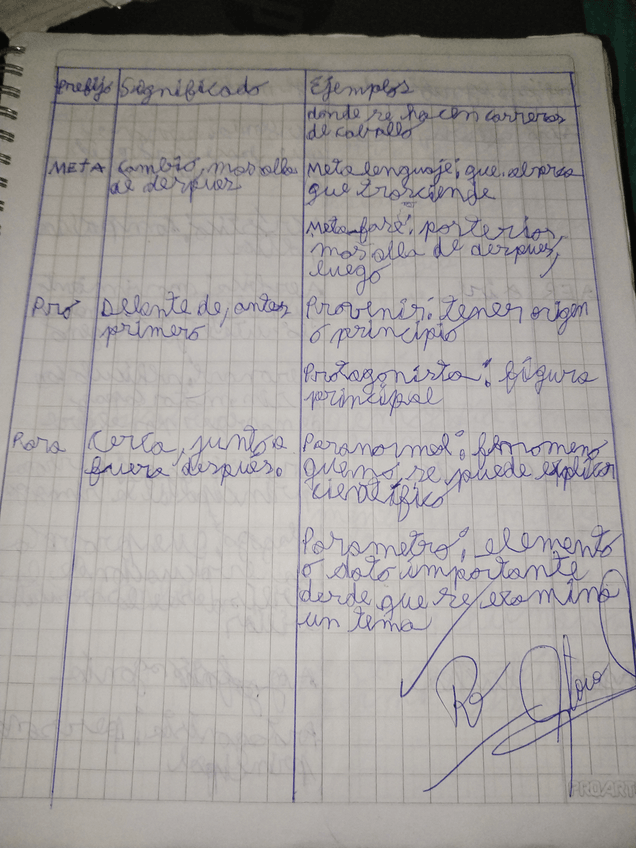 Prefijo Significado Ejemplos
donde se hacen carreras
de caballo
META cambio, mas alla
de despues
metalenguaje; que abarca
que trasciende
Meta-fase: posterior,
mas alla de despues,
luego
Pro Delante de, antes
primero
Provenir: tener origen
o principio
Protagonista: figura
principal
Para Cerca, junto a
fuera despues.
Paranormal: fenomeno
que no se puede explicar
cientifico
Parametro: elemento
o dato importante
desde que se examina
un tema
PROARTE